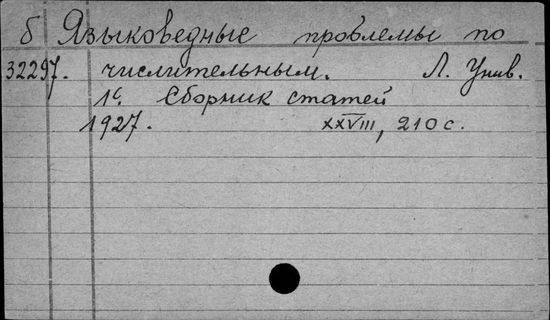 б Языковедные проблемы по
32297. числительным. Л. Унив.
1с. Сборник статей
1927. XXVIII, 210 с.